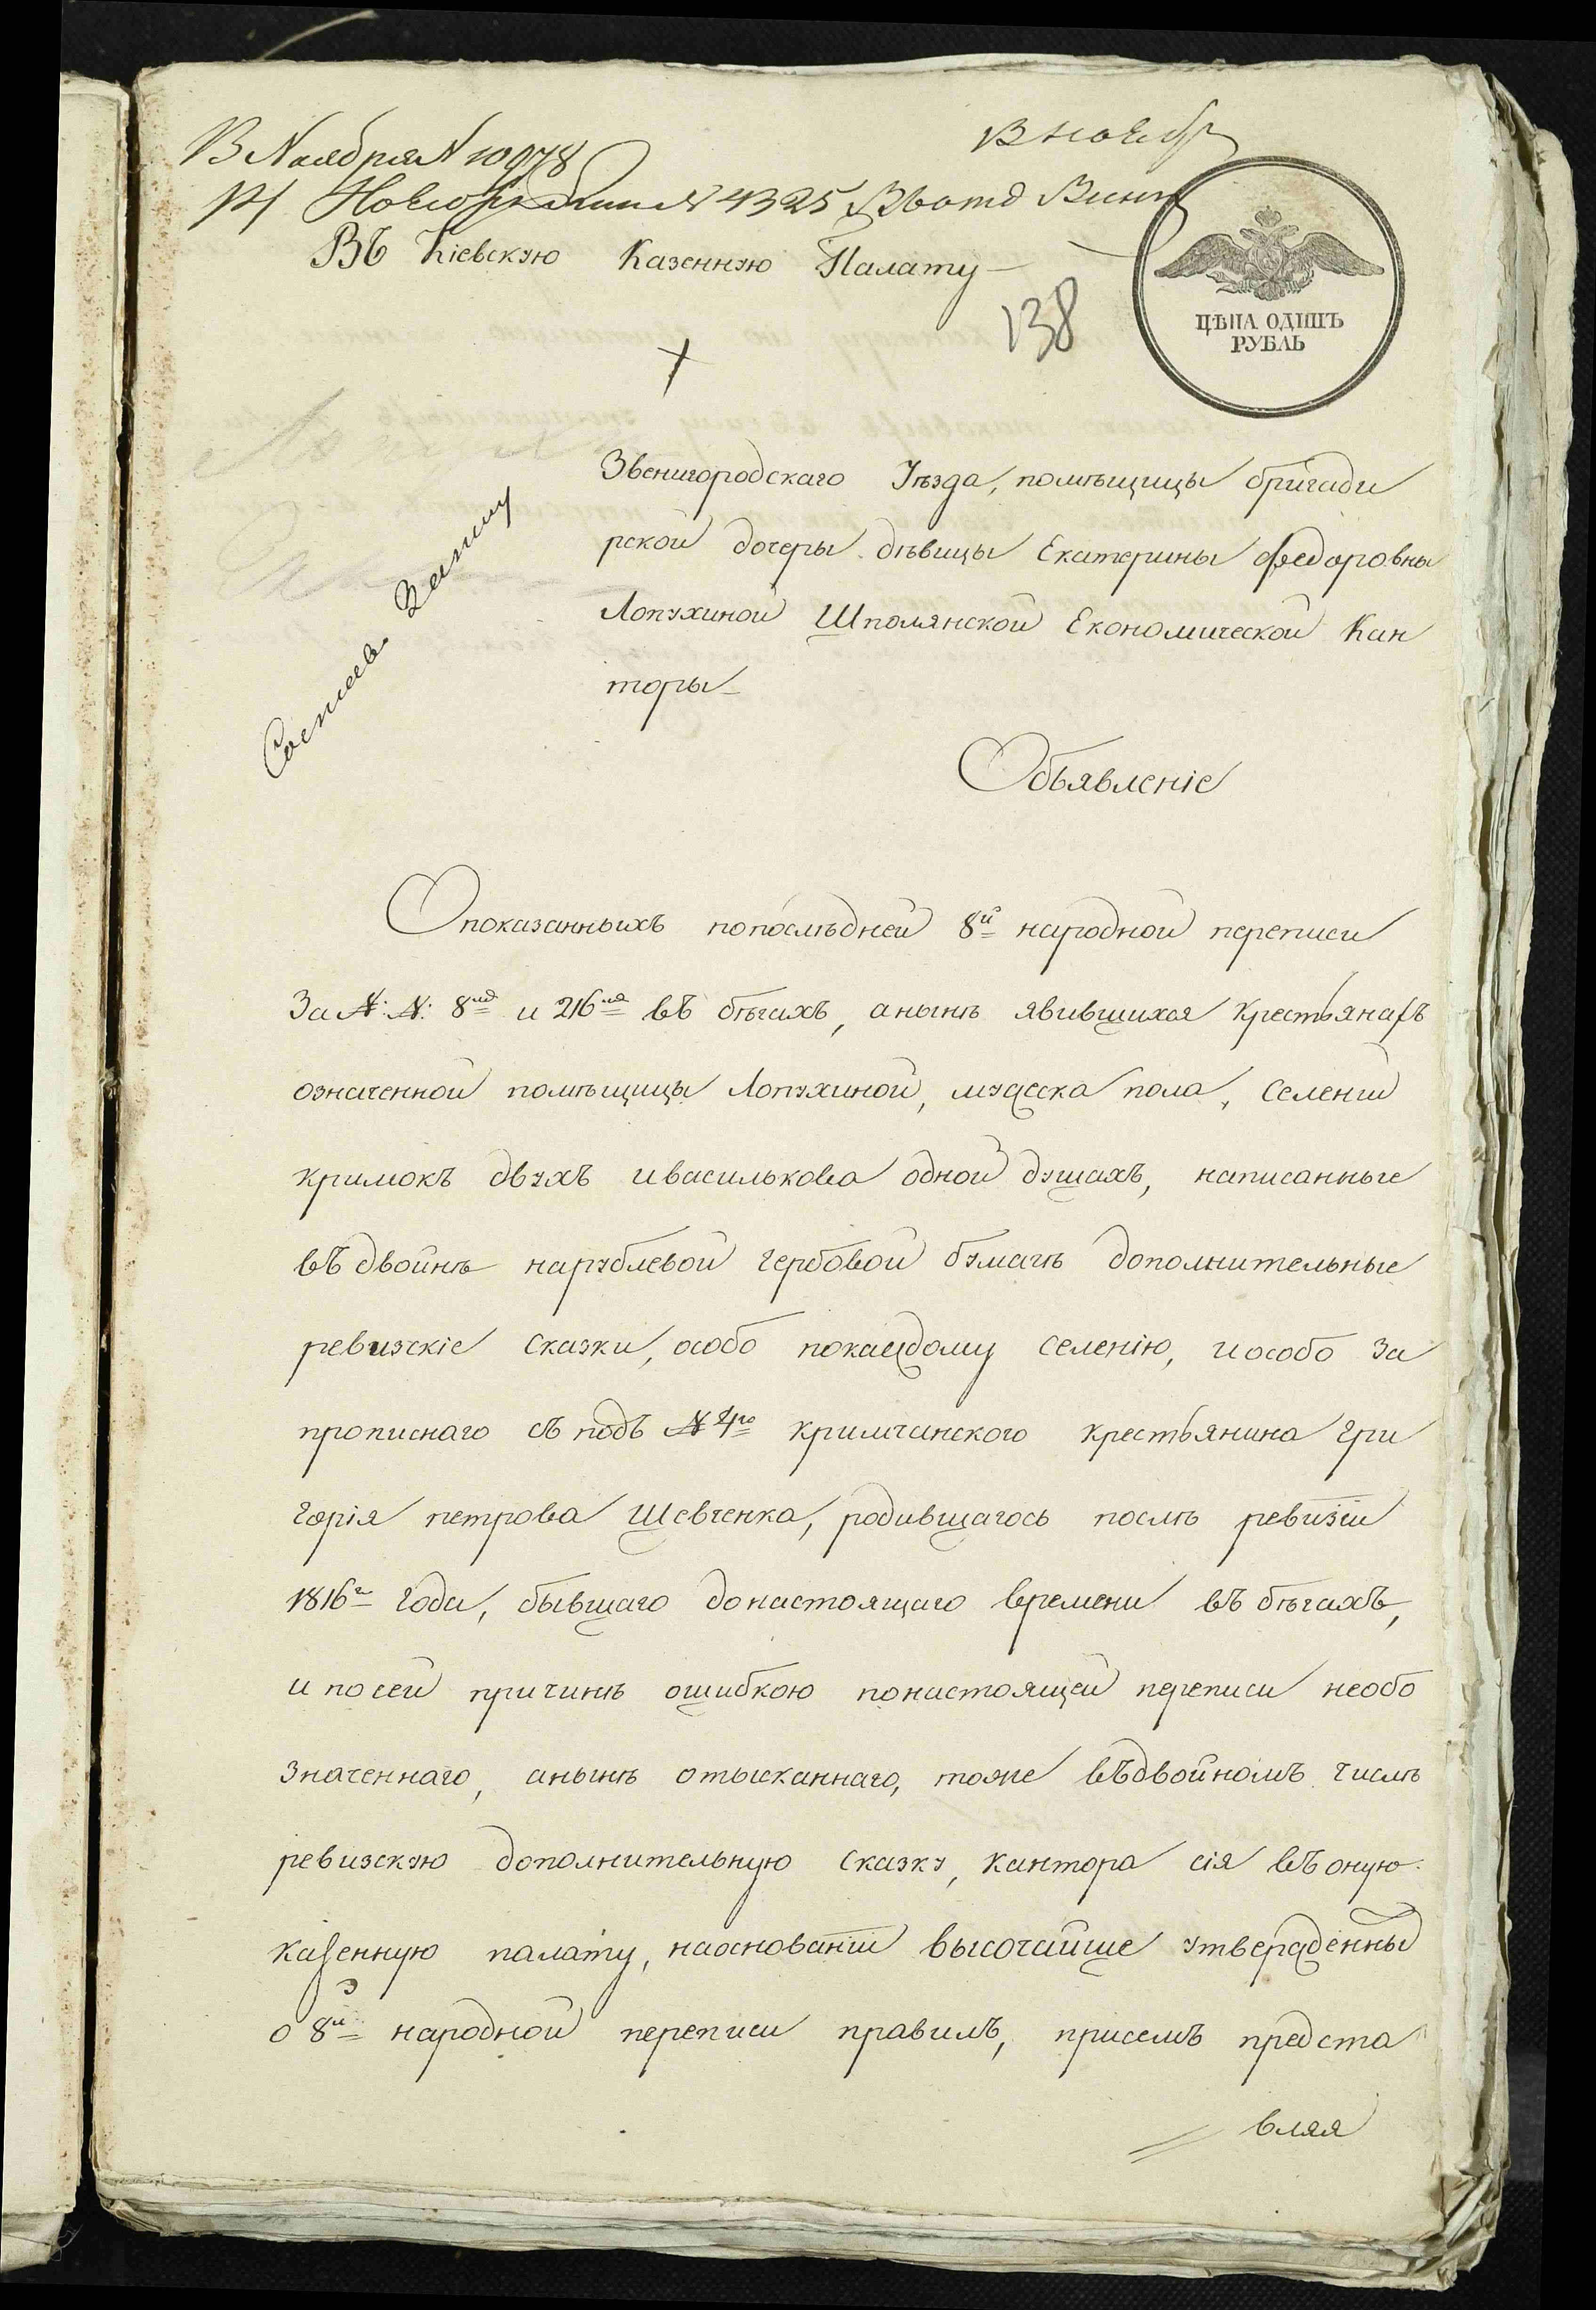 В Ноября № 10978
№ 4325
Въ Кіевскую Казенную Палату
138
ЦѢНА ОДИНЪ
РУБЛЬ
Звенигородскаго Уѣзда, помѣщицы бригади
рской дочеры дѣвицы Екатерины Федоровны
Лопухиной Шполянской Економической Кан
торы
Обьявленіе
О показанныхъ попослѣдней 8й народной переписи
За №: №: 8мъ и 216мъ въ бѣгахъ, анынѣ явившихся крестьянахъ
означенной помѣщицы Лопухиной, мужеска пола, Селеній
кримокъ двухъ ивасилькова одной душахъ, написанные
въ двойнѣ нарублевой гербовой бумагѣ дополнительные
ревизскіе сказки, особо покаждому селенію, иособо за
прописнаго съ подъ № 4го кримчанского крестьянина Гри
горія петрова Шевченка, родившагось послѣ ревизіи
1816г года, бывшаго донастоящаго времени въ бѣгахъ,
и посей причинѣ ошибкою понастоящей переписи необо
значеннаго, анынѣ отысканнаго, тоже въдвойномъ числѣ
ревизскую дополнительную сказку, кантора сія въ оную
казенную палату, наоснованіи высочайше утвержденныхъ
о 8й народной переписи правилъ, присемъ предста
вляя